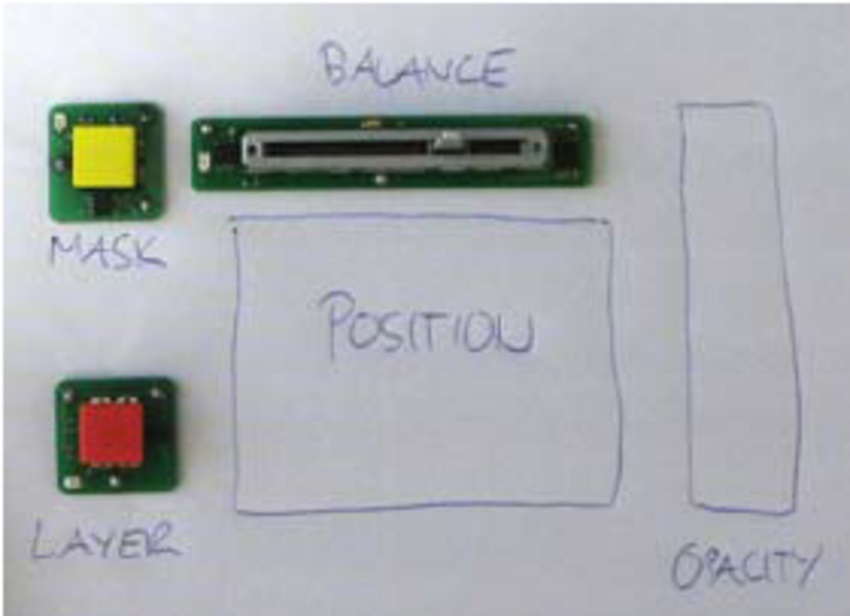 BALANCE
MASK
POSITION
LAYER
OPACITY